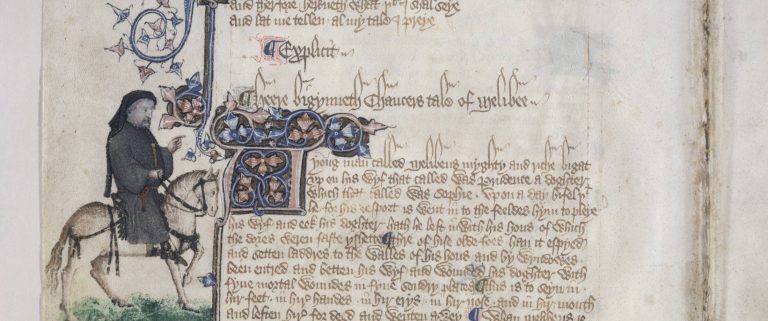 and therfore herkneth what þt I shal seye
and lat me tellen al my tale I preye
¶ Explicit
¶ Heere bigynneth Chaucers tale of Melibee
A yong man called Melibeus myghty and riche bigat
vp on his wyf that called was Prudence a doghter
which that called was Sophie . vpon a day bifel
he for his desport is went in to the feeldes hym to pleye
his wyf and eek his doghter hath he left in with his hous of which
the dores weren faste yshette Thre of hise olde foes han it espyed
and setten laddres to the walles of his hous and by wyndowes
been entred . and betten his wyf and wounded his doghter with
fyue mortal woundes in fyue sondry places This is to seyn in
hir feet . in hir handes . in hir erys . in hir nose . and in hir mouth
and leften hir for deed and wenten awey ¶ Whan Melibeus is